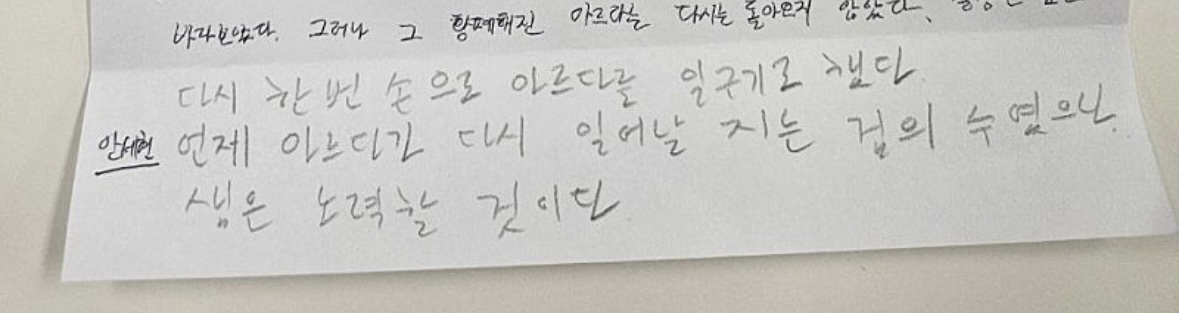 바라보았다. 그러나 그 황폐해진 아르라는 다시는 돌아오지 않았다.
다시 한번 손으로 아르다를 일구기로 했다.
안세현 언제 아르다가 다시 일어날 지는 겁의 수였으나.
샘은 노력할 것이다.